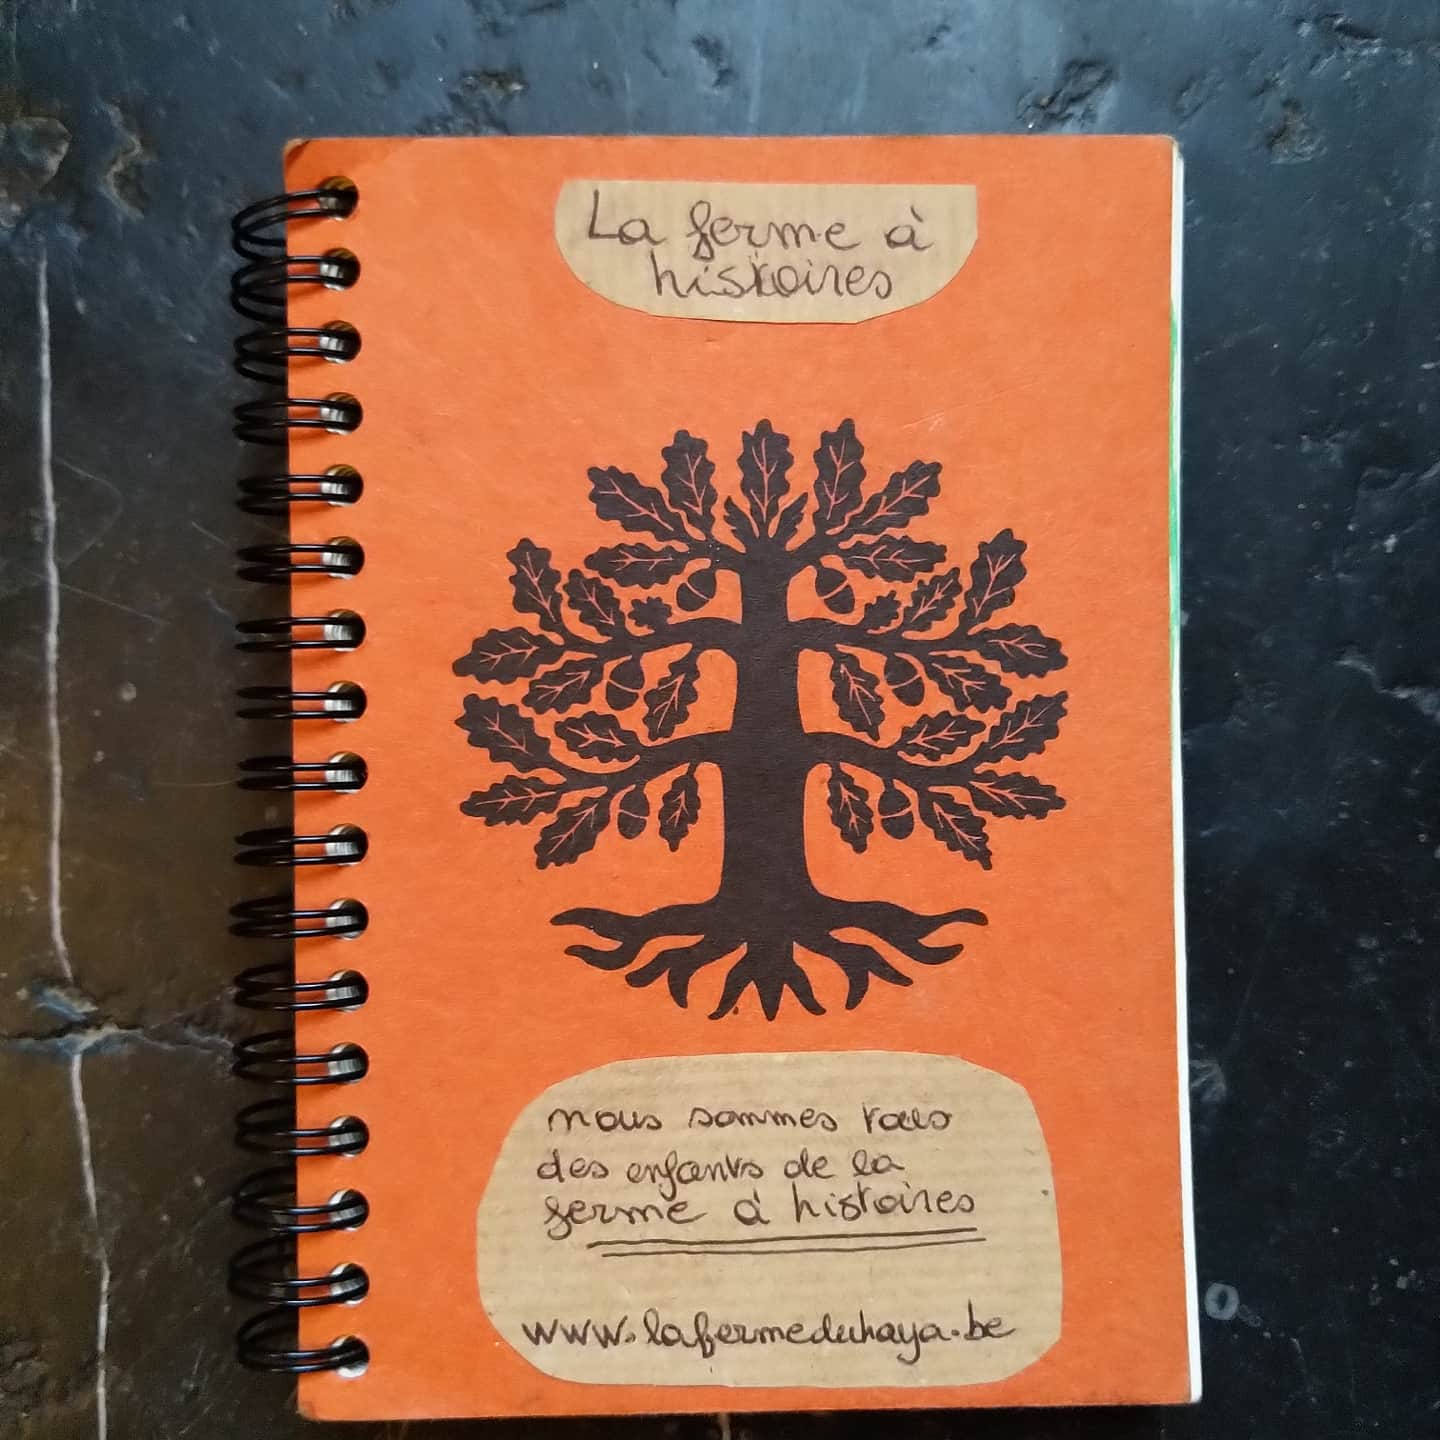 La ferme à
histoires
nous sommes tous
des enfants de la
ferme à histoires
www.lafermeduhaya.be